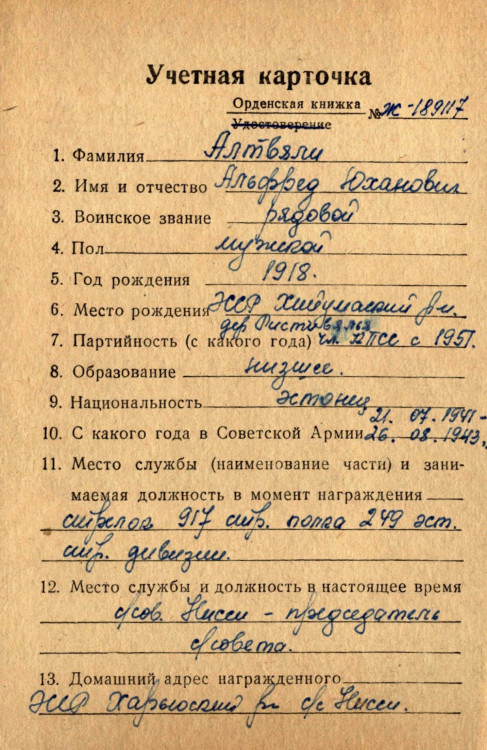 Учетная карточка
Орденская книжка
Удостоверение № Ж-189117
1. Фамилия Алтвяли
2. Имя и отчество Альфред Юханович
3. Воинское звание рядовой
4. Пол мужской
5. Год рождения 1918.
6. Место рождения ЭССР Хийумаский р-н.
дер. Ристивялья
7. Партийность (с какого года) чл. КПСС с 1951.
8. Образование низшее.
9. Национальность эстонец
21. 07. 1941 -
10. С какого года в Советской Армии 26. 08. 1943г.
11. Место службы (наименование части) и зани-
маемая должность в момент награждения
стрелок 917 стр. полка 249 эст.
стр. дивизии.
12. Место службы и должность в настоящее время
с/сов. Нисси - председатель
с/совета.
13. Домашний адрес награжденного
ЭССР Харьюский р-н с/с Нисси.